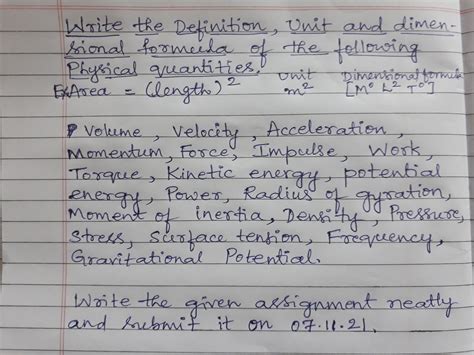 Write the Definition, Unit and dimen-
sional formula of the following
Physical quantities. Unit Dimensional formula
Ex Area = (length)² m² [M⁰ L² T⁰]
Volume, Velocity, Acceleration,
Momentum, Force, Impulse, Work,
Torque, Kinetic energy, potential
energy, Power, Radius of gyration,
Moment of inertia, Density, Pressure,
Stress, Surface tension, Frequency,
Gravitational Potential.
Write the given assignment neatly
and submit it on 07.11.21.